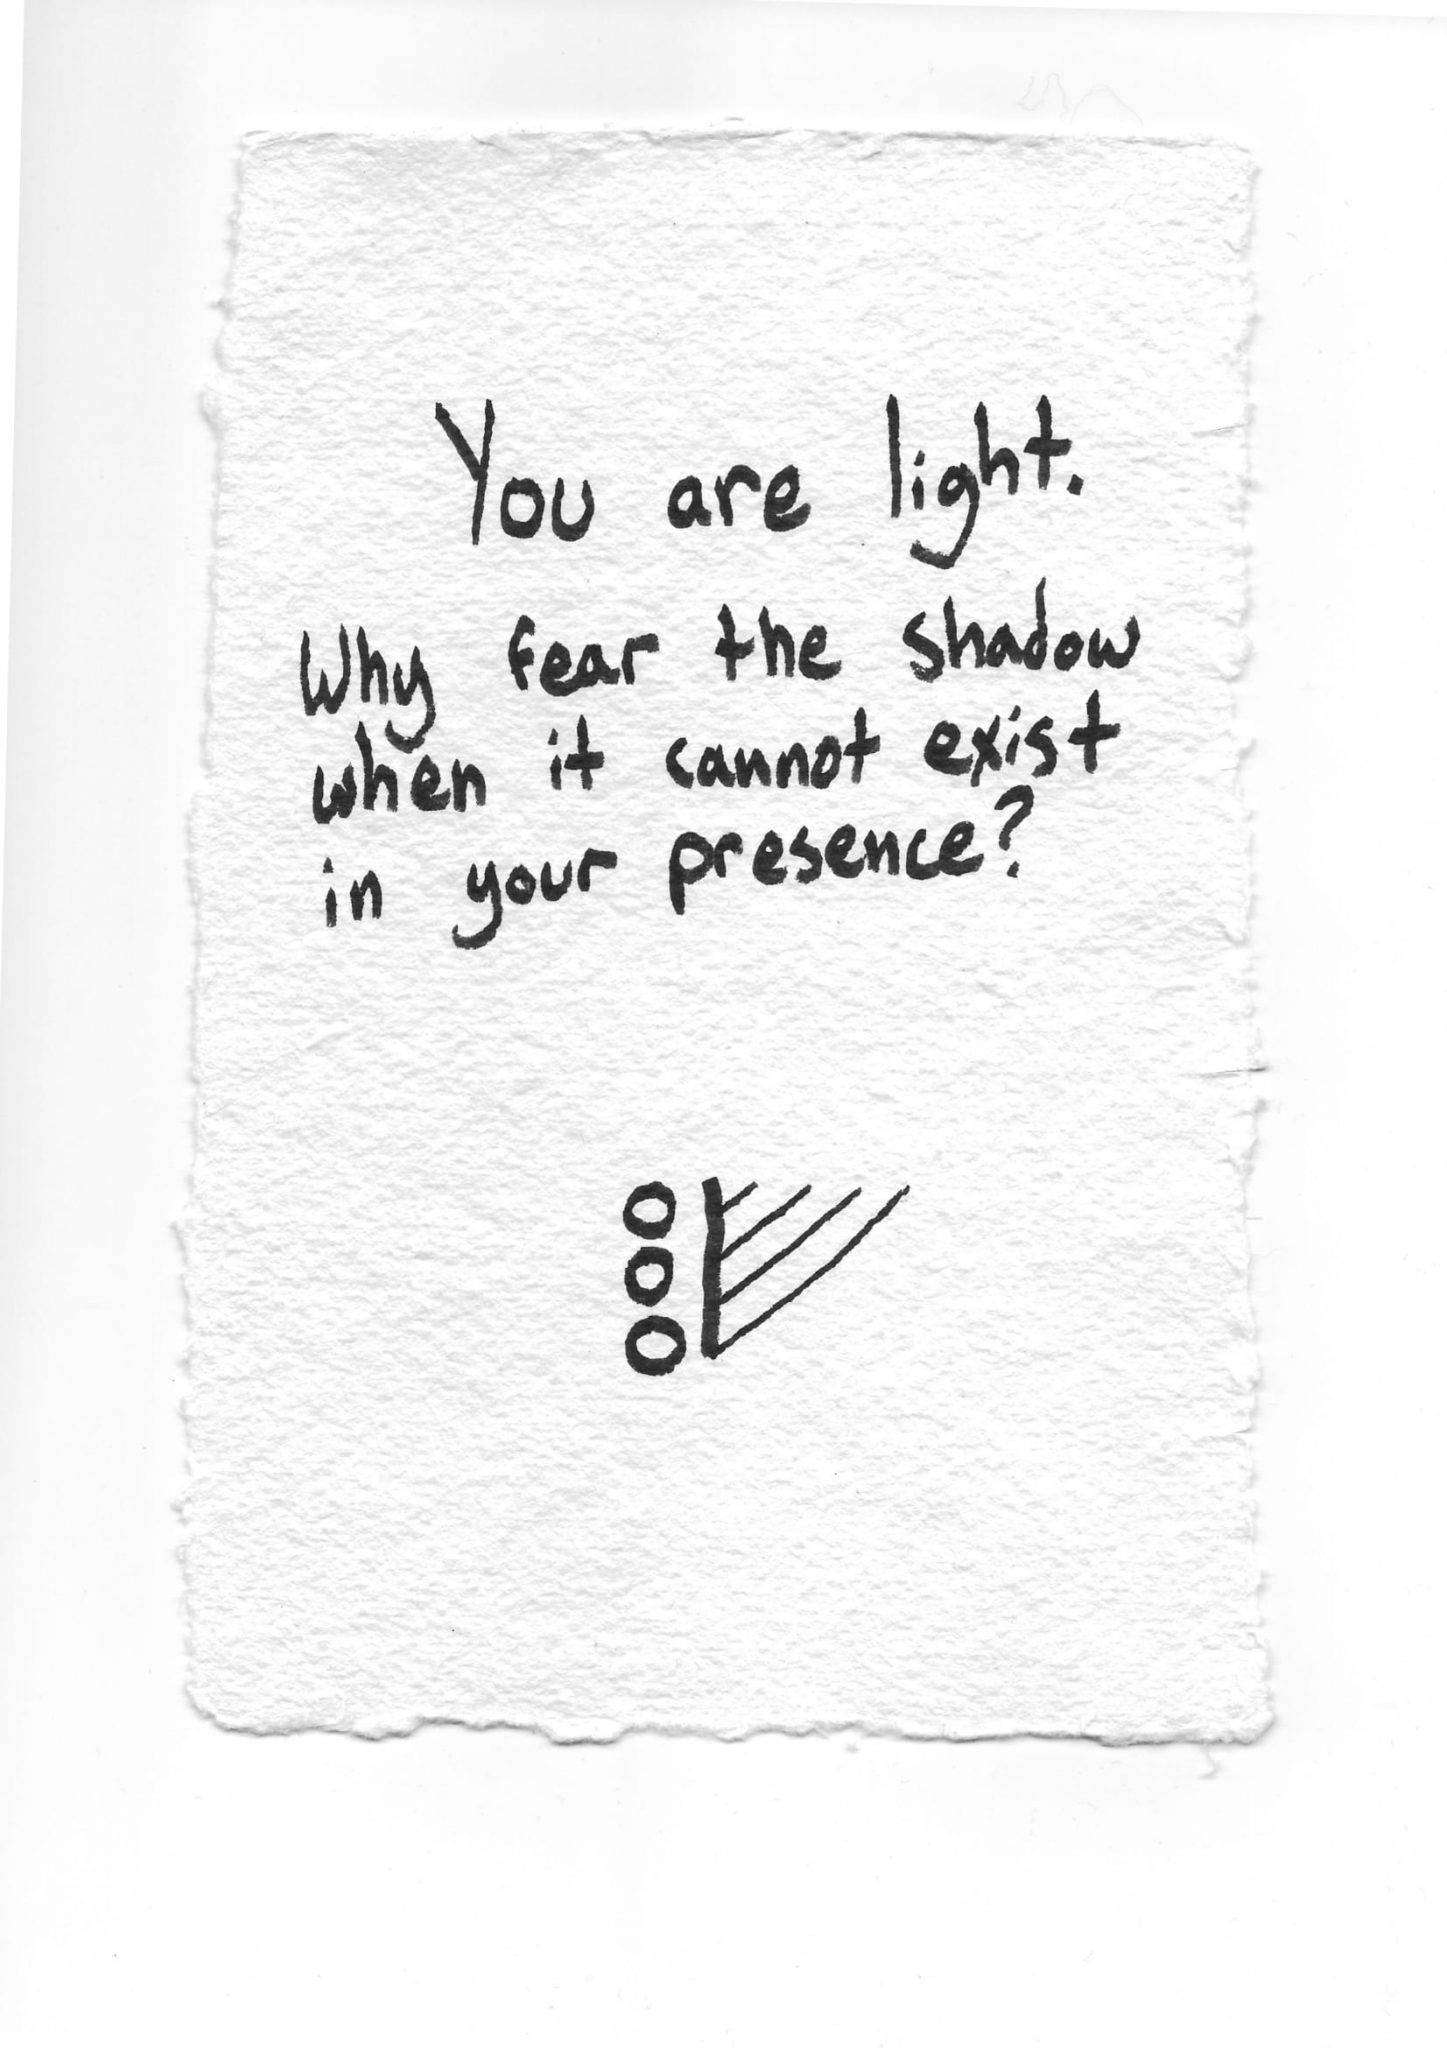 You are light.
Why fear the shadow
when it cannot exist
in your presence?